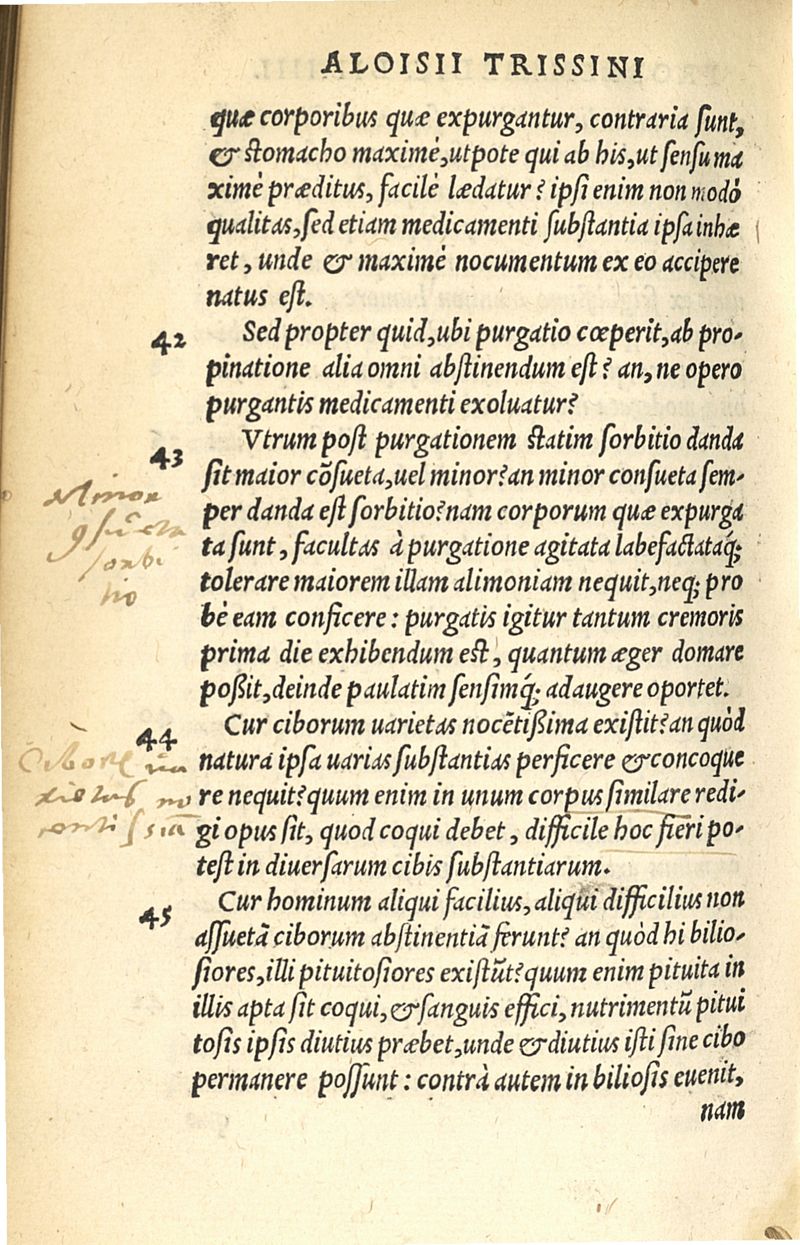 ALOISII TRISSINI
quæ corporibus quæ expurgantur, contraria sunt,
& stomacho maximè, utpote qui ab his, ut sensu ma
ximè præditus, facilè lædatur? ipsi enim non modò
qualitas, sed etiam medicamenti substantia ipsa inhæ
ret, unde & maximè nocumentum ex eo accipere
natus est.
42 Sed propter quid, ubi purgatio cœperit, ab pro-
pinatione alia omni abstinendum est? an, ne opero
purgantis medicamenti exoluatur?
43 Vtrum post purgationem statim sorbitio danda
sit maior cõsueta, uel minor? an minor consueta sem-
per danda est sorbitio? nam corporum quæ expurga
ta sunt, facultas à purgatione agitata labefactataq́;
tolerare maiorem illam alimoniam nequit, neq; pro
bè eam conficere: purgatis igitur tantum cremoris
prima die exhibendum est, quantum æger domare
poßit, deinde paulatim sensimq́; adaugere oportet.
Minor
9sũeta
sorbi
tio
44 Cur ciborum uarietas nocẽtißima existit? an quòd
natura ipsa uarias substantias perficere & concoque
re nequit? quum enim in unum corpus similare redi-
gi opus sit, quod coqui debet, difficile hoc fieri po-
test in diuersarum cibis substantiarum.
Cibor ua
rietas no
centissiã
45 Cur hominum aliqui facilius, aliqui difficilius non
assuetã ciborum abstinentiã ferunt? an quòd hi bilio-
siores, illi pituitosiores existũt? quum enim pituita in
illis apta sit coqui, & sanguis effici, nutrimentũ pitui
tosis ipsis diutius præbet, unde & diutius isti sine cibo
permanere possunt: contrà autem in biliosis euenit,
nam